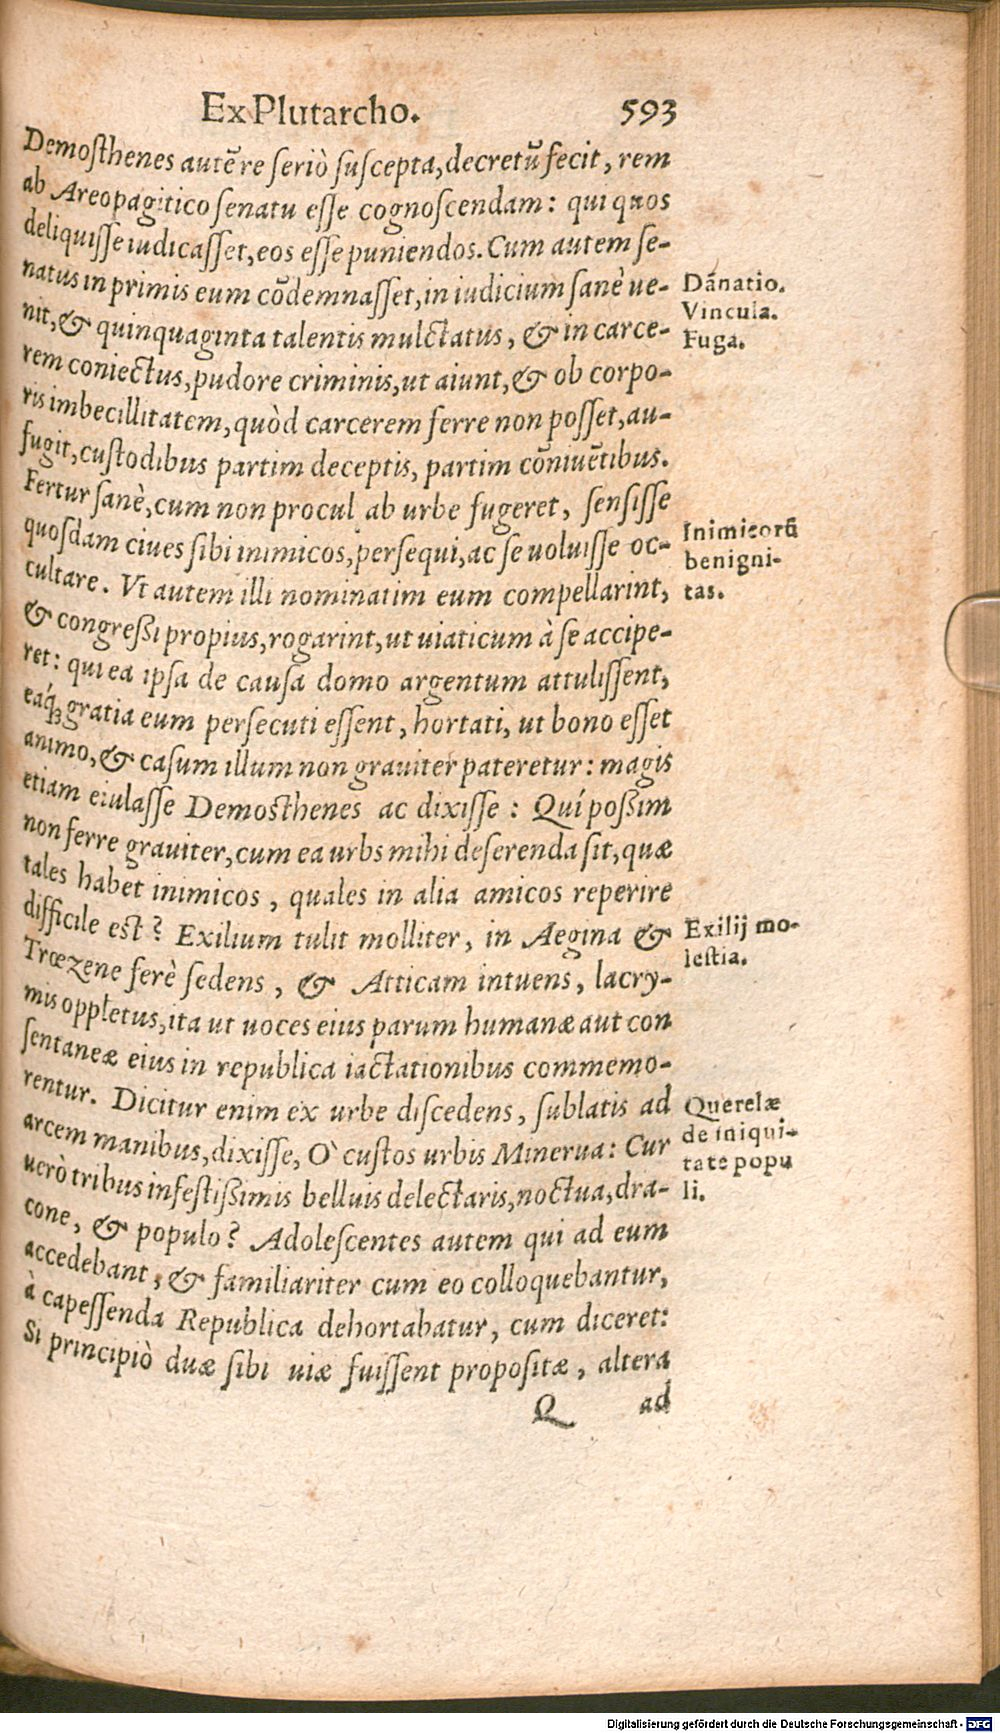 Ex Plutarcho. 593
Demosthenes autē re seriò suscepta, decretū fecit, rem
ab Areopagitico senatu esse cognoscendam: qui quos
deliquisse iudicasset, eos esse puniendos. Cum autem se-
natus in primis eum cōdemnasset, in iudicium sanè ue-
nit, & quinquaginta talentis mulctatus, & in carce-
rem coniectus, pudore criminis, ut aiunt, & ob corpo-
ris imbecillitatem, quòd carcerem ferre non posset, au-
fugit, custodibus partim deceptis, partim cōniuētibus.
Fertur sanè, cum non procul ab urbe fugeret, sensisse
quosdam ciues sibi inimicos, persequi, ac se uoluisse oc-
cultare. Vt autem illi nominatim eum compellarint,
& congressi propius, rogarint, ut uiaticum à se accipe-
ret: qui ea ipsa de causa domo argentum attulissent,
eaq́ꝫ gratia eum persecuti essent, hortati, ut bono esset
animo, & casum illum non grauiter pateretur: magis
etiam eiulasse Demosthenes ac dixisse: Quí possim
non ferre grauiter, cum ea urbs mihi deserenda sit, quæ
tales habet inimicos, quales in alia amicos reperire
difficile est? Exilium tulit molliter, in Aegina &
Trœzene ferè sedens, & Atticam intuens, lacry-
mis oppletus, ita ut uoces eius parum humanæ aut con
sentaneæ eius in republica iactationibus commemo-
rentur. Dicitur enim ex urbe discedens, sublatis ad
arcem manibus, dixisse, O` custos urbis Minerua: Cur
uerò tribus infestissimis belluis delectaris, noctua, dra-
cone, & populo? Adolescentes autem qui ad eum
accedebant, & familiariter cum eo colloquebantur,
à capessenda Republica dehortabatur, cum diceret:
Si principiò duæ sibi uiæ fuissent propositæ, altera
Q ad
Dānatio.
Vincula.
Fuga.
Inimicorū
benigni-
tas.
Exilij mo-
lestia.
Querelæ
de iniqui-
tate popu
li.
Digitalisierung gefördert durch die Deutsche Forschungsgemeinschaft - DFG